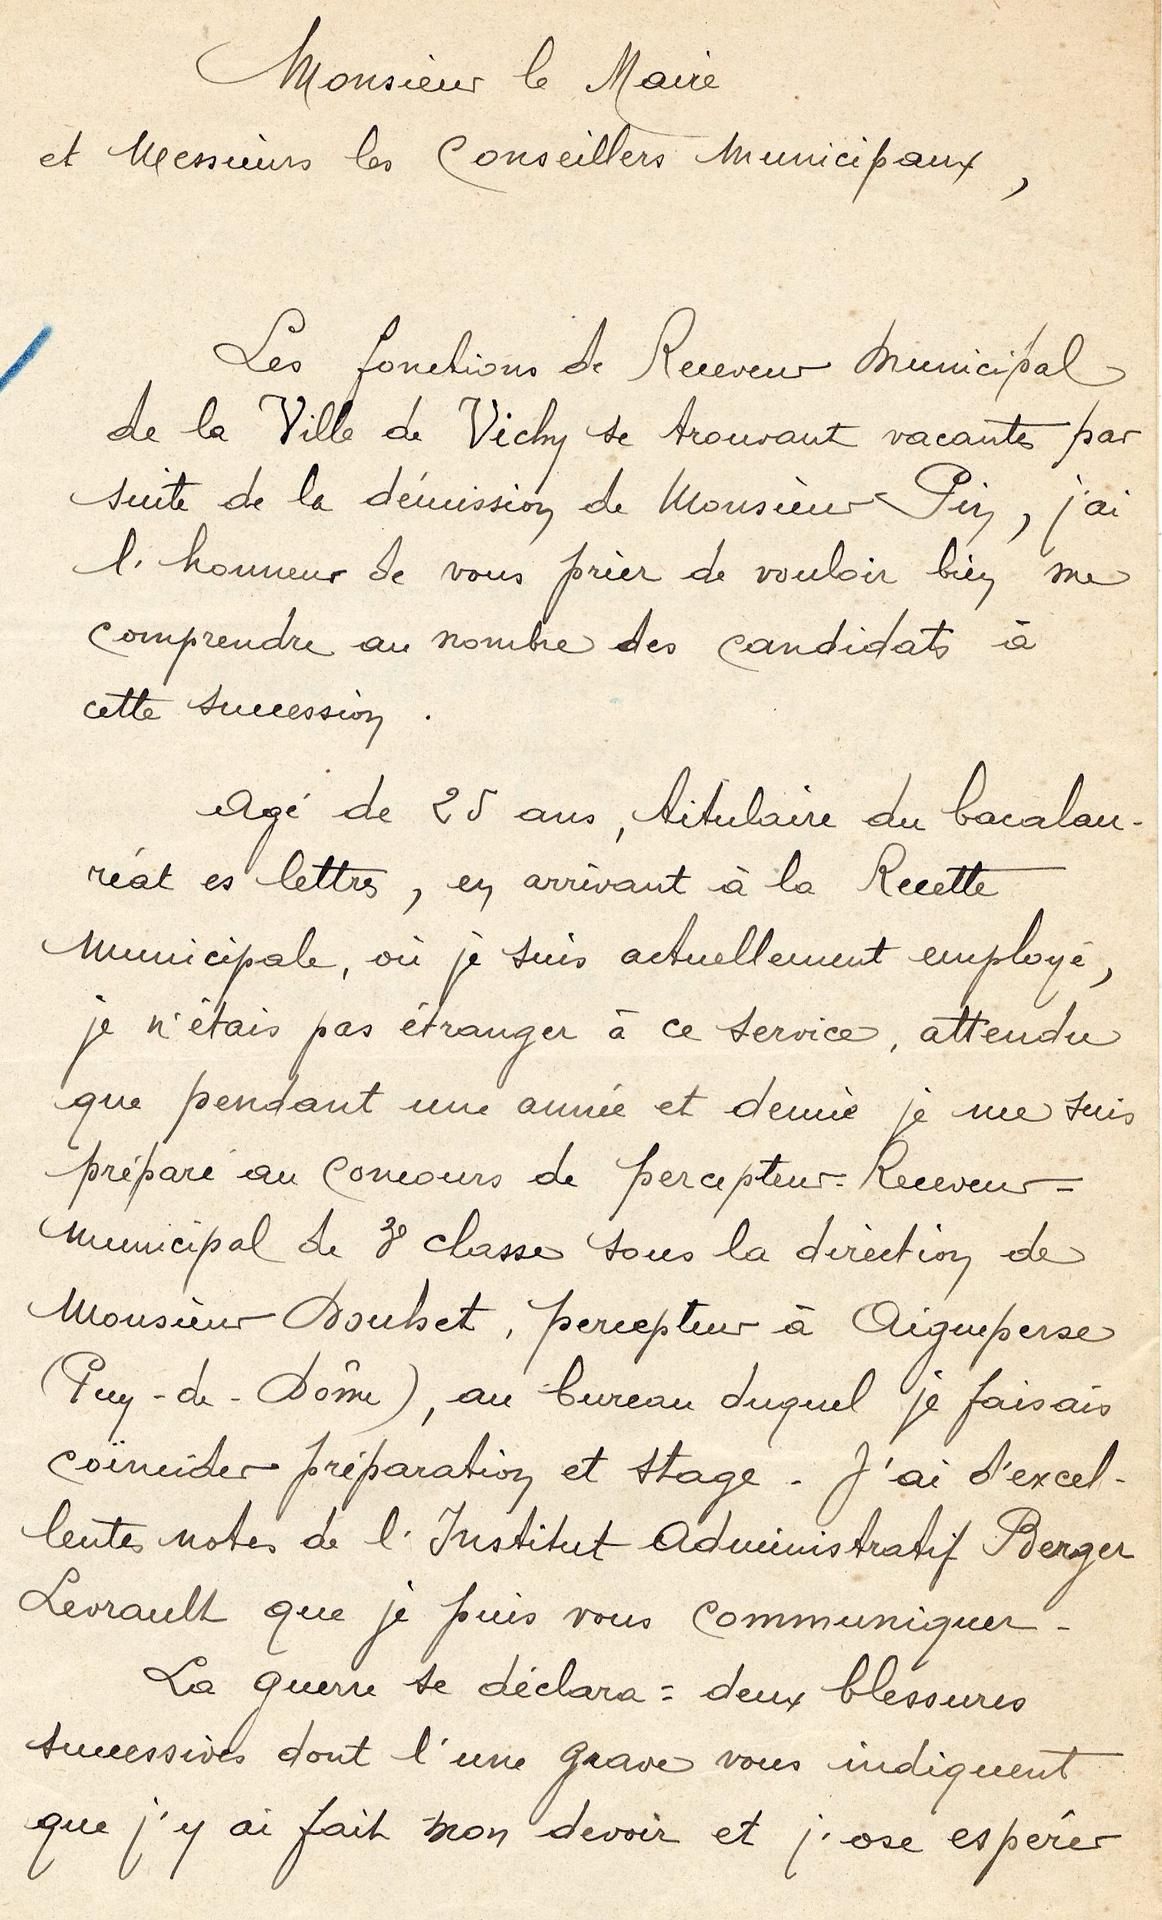 Monsieur le Maire
et Messieurs les Conseillers Municipaux,
Les fonctions de Receveur Municipal
de la Ville de Vichy se trouvant vacantes par
suite de la démission de Monsieur Pin, j'ai
l'honneur de vous prier de vouloir bien me
comprendre au nombre des candidats à
cette succession.
Agé de 25 ans, titulaire du baccalau-
réat es lettres, en arrivant à la Recette
Municipale, où je suis actuellement employé,
je n'étais pas étranger à ce service, attendu
que pendant une année et demie je me suis
préparé au Concours de percepteur-Receveur-
Municipal de 3e classe sous la direction de
Monsieur Doulset, percepteur à Aigueperse
(Puy-de-Dôme), au bureau duquel je faisais
coïncider préparation et stage. J'ai d'excel-
lentes notes de l'Institut Administratif Berger
Levrault que je puis vous communiquer.
La guerre se déclara = deux blessures
successives dont l'une grave vous indiquent
que j'y ai fait mon devoir et j'ose espérer